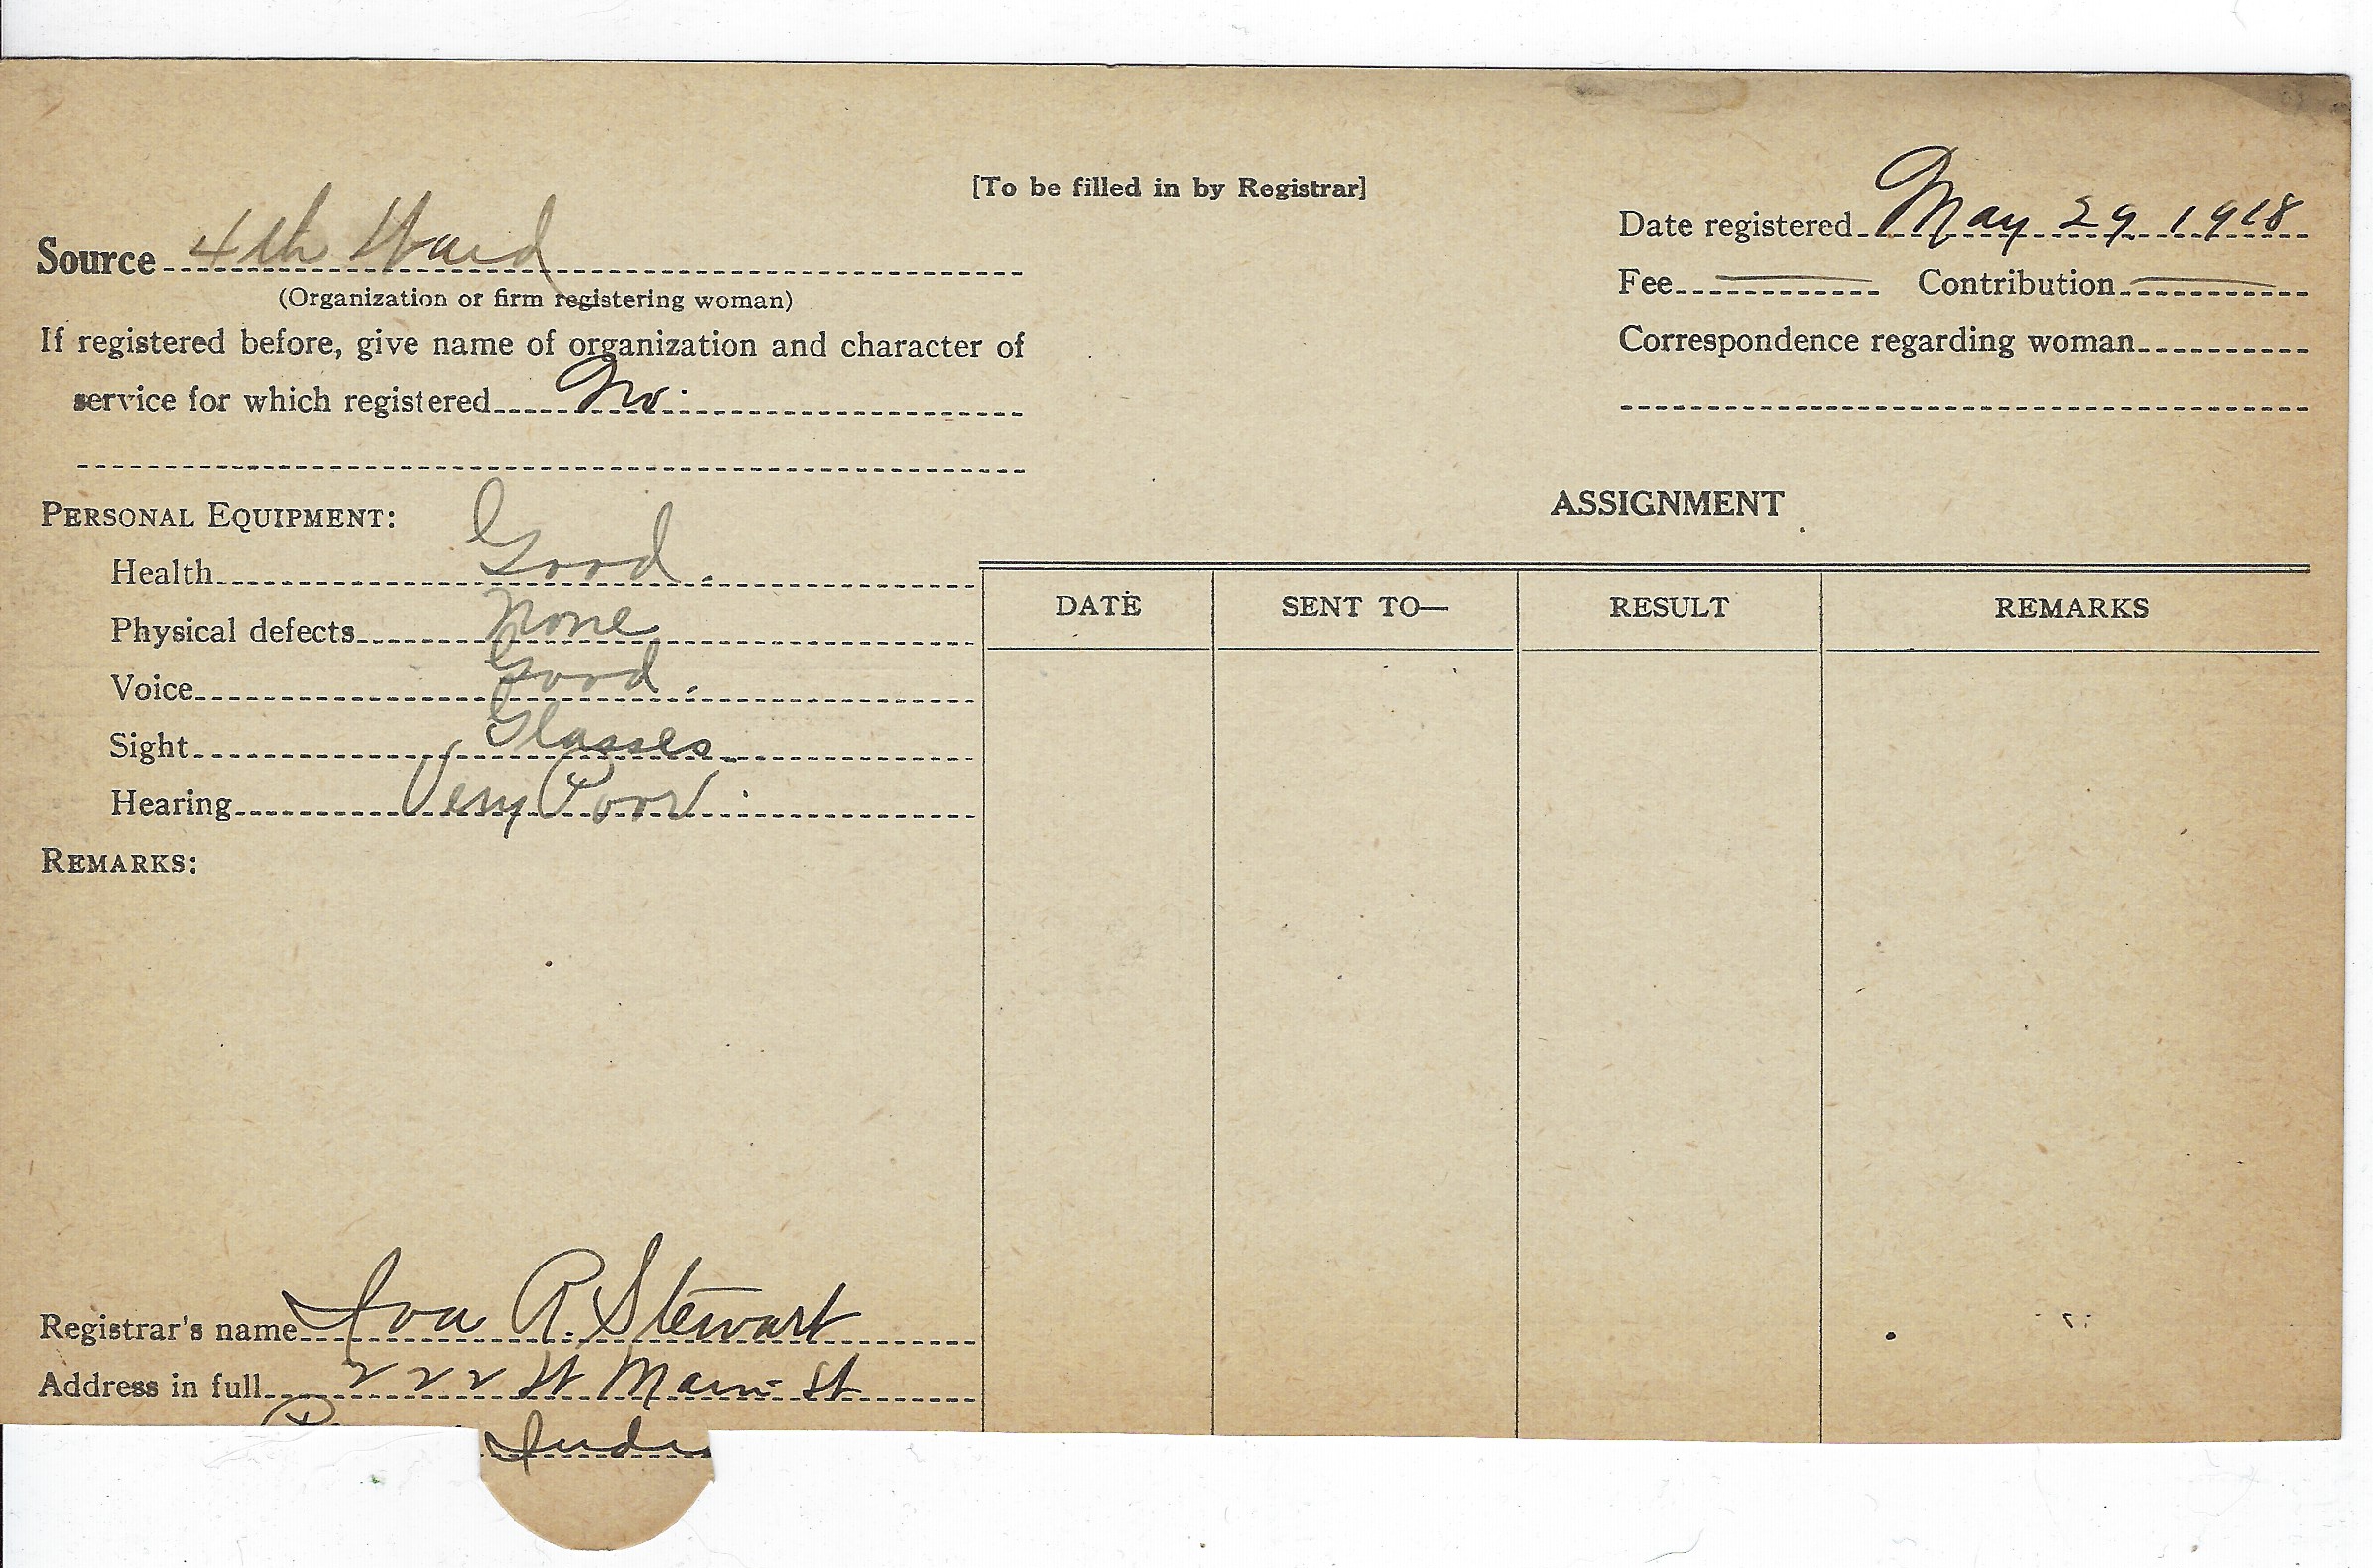 [To be filled in by Registrar]
Source 4th Ward
(Organization or firm registering woman)
If registered before, give name of organization and character of
service for which registered No.
Date registered May 29 1918
Fee Contribution
Correspondence regarding woman
PERSONAL EQUIPMENT:
Health Good.
Physical defects None
Voice Good.
Sight Glasses
Hearing Very Poor.
REMARKS:
ASSIGNMENT
DATE SENT TO— RESULT REMARKS
Registrar's name Iva R. Stewart
Address in full 222 W Main St